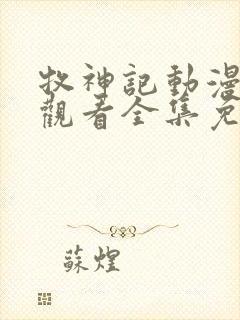 牧神記動漫
觀看全集免
蘇煌